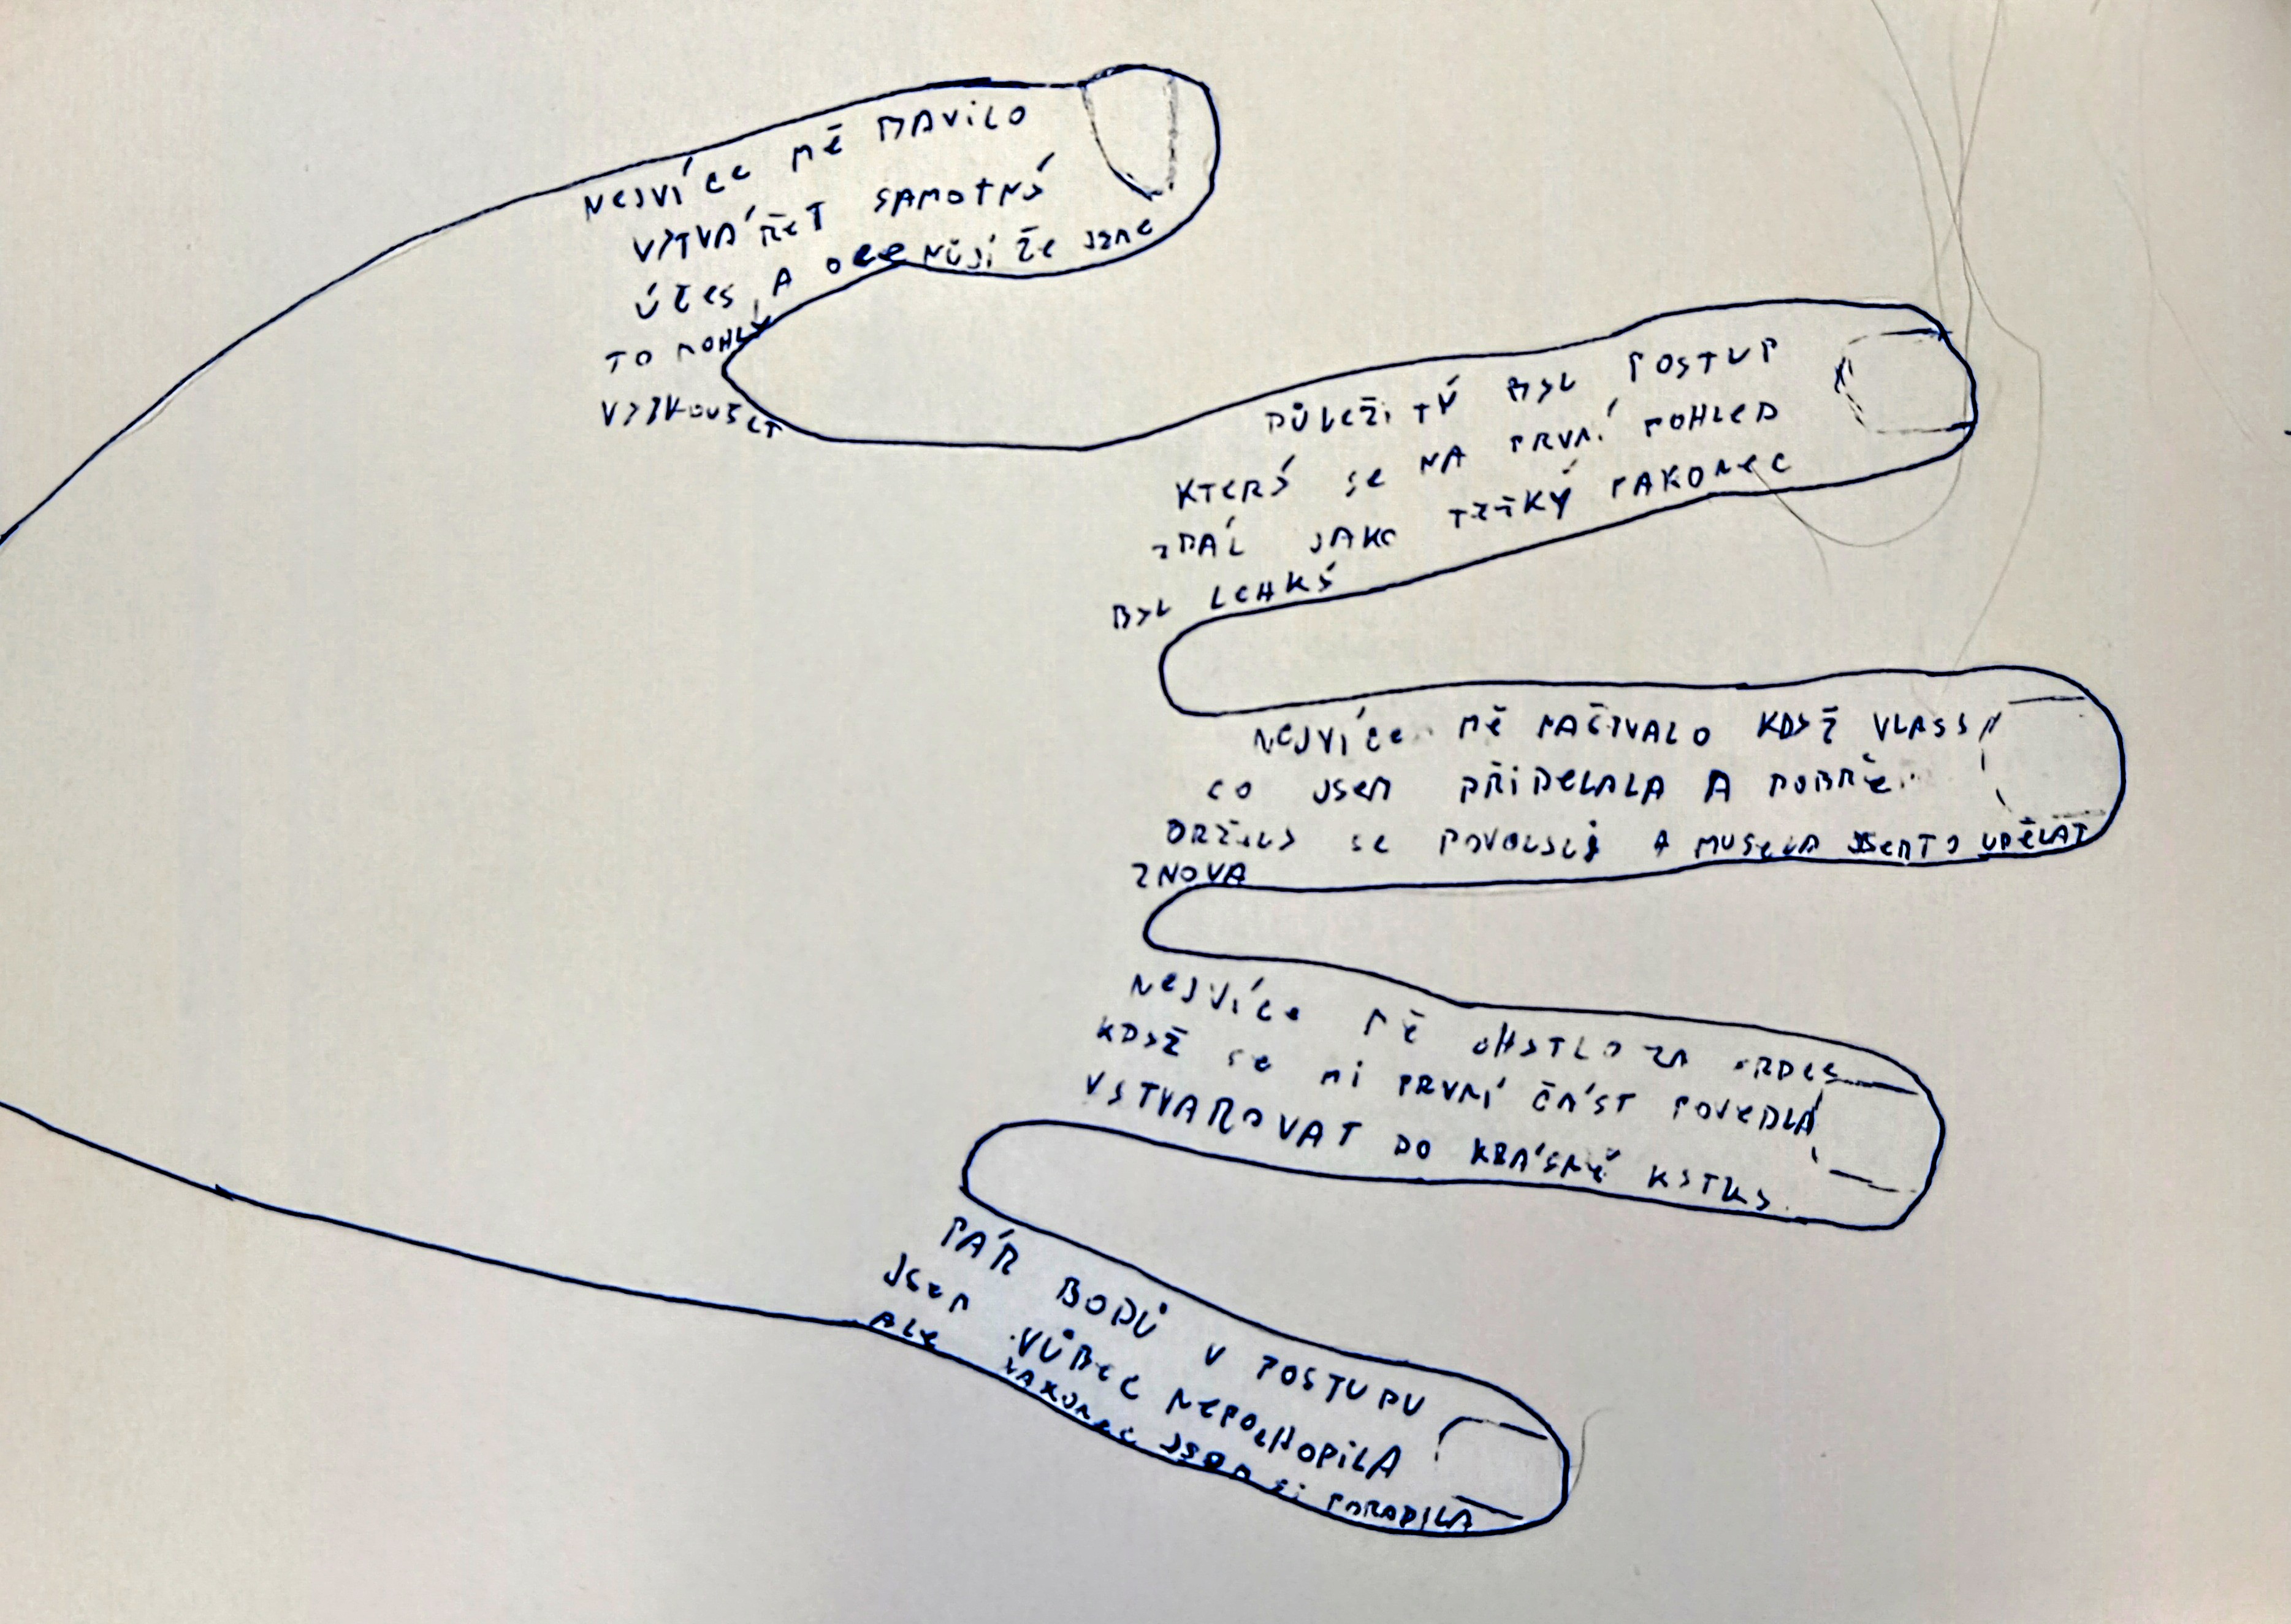 NEJVÍCE MĚ BAVILO
VYTVÁŘET SAMOTNÝ
ÚČES A OCENŮJÍ ŽE JSME
TO MOHLY
VYZKOUŠET
DŮLEŽITÝ BYL POSTUP
KTERÝ SE NA PRVNÍ POHLED
ZDÁL JAKO TĚŽKÝ NAKONEC
BYL LEHKÝ
NEJVÍCE MĚ NAŠTVALO KDYŽ VLASY
CO JSEM PŘIDELALA A DOBŘE
DRŽELY SE POVOLILY A MUSELA JSEM TO UDĚLAT
ZNOVA
NEJVÍCE MĚ CHYTLO ZA SRDCE
KDYŽ SE MI PRVNÍ ČÁST POVEDLA
VYTVAROVAT DO KRÁSNÉ KYTKY
PÁR BODŮ V POSTUPU
JSEM VŮBEC NEPOCHOPILA
ALE NAKONEC JSEM SI PORADILA